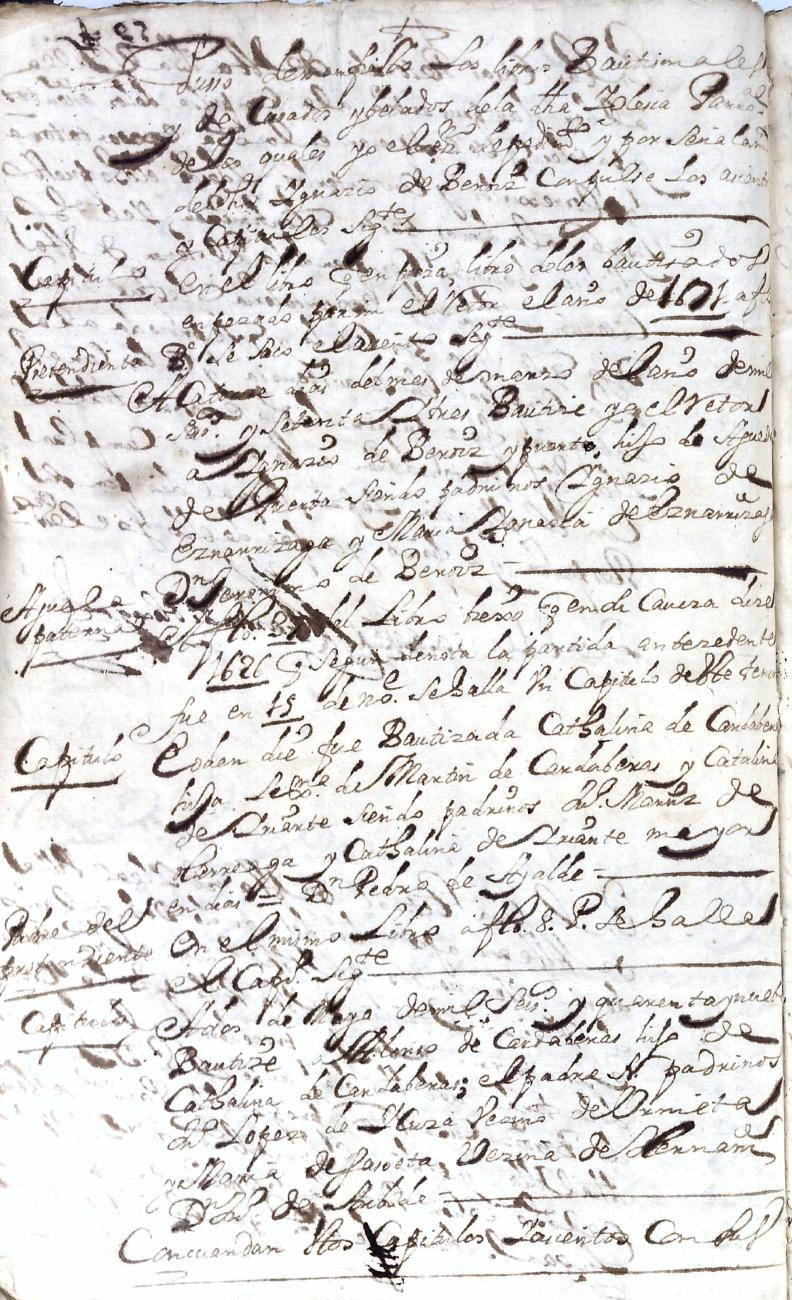 87
Puso demanifiesto los libros Bautismales
y de Casados y belados dela dha Iglesia Parro
de los quales yo el ess.no depedim.to y por señalam
del dho Ygnazio de Beroiz Conpulse los asient
y Capitulos sig.tes
Capitulo
en el libro q enpieza, libro delos bautizados
enpezado por mi el Retor el año de 1671 a f
Pretendiente
B.e se saco el asiento Seg.te
A Catorze dias del mes de marzo del año de mil
seis.s y Setenta y tres Bautize yo el Retor
a Ygnazio de Beroiz y puerto, hijo de Agueda
de Puerta siendo padrinos Ygnazio de
Eznarrizaga y Maria Ygnacia de Eznarrizag
Dn Geronimo de Beroiz
Aguela paterna
A fo. 37 del Libro q en su Caveza dize
1626 y segun denota la partida antezedente
fue en 15 de no.e se halla Un Capitulo deste tenor
Capitulo
Eodem die fue Bautizada Cathalina de Cardaberas
hija lex.ma de Martin de Cardaberas y Catalina
de Yriarte siendo padrinos Ju.o Martiz de
Larreaga y Cathalina de Yriarte mayor
en dias = Dn Pedro de Ayalde
Padre del pretendiente
en el mismo Libro a fo. 8. B. se halla
el Cap.o Sig.te
Capitulo
A dos de Mayo de mil Seis.s y quarenta y nuebe
Bautize a Alonso de Cardaberas hijo de
Cathalina de Cardaberas; el padre N. padrinos
Ju.o Lopez de Vezino de Urnieta
y Maria de Sasoeta Vezina de Hernani
Dn Ju.o de
Concuerdan estos Capitulos y asientos Con sus